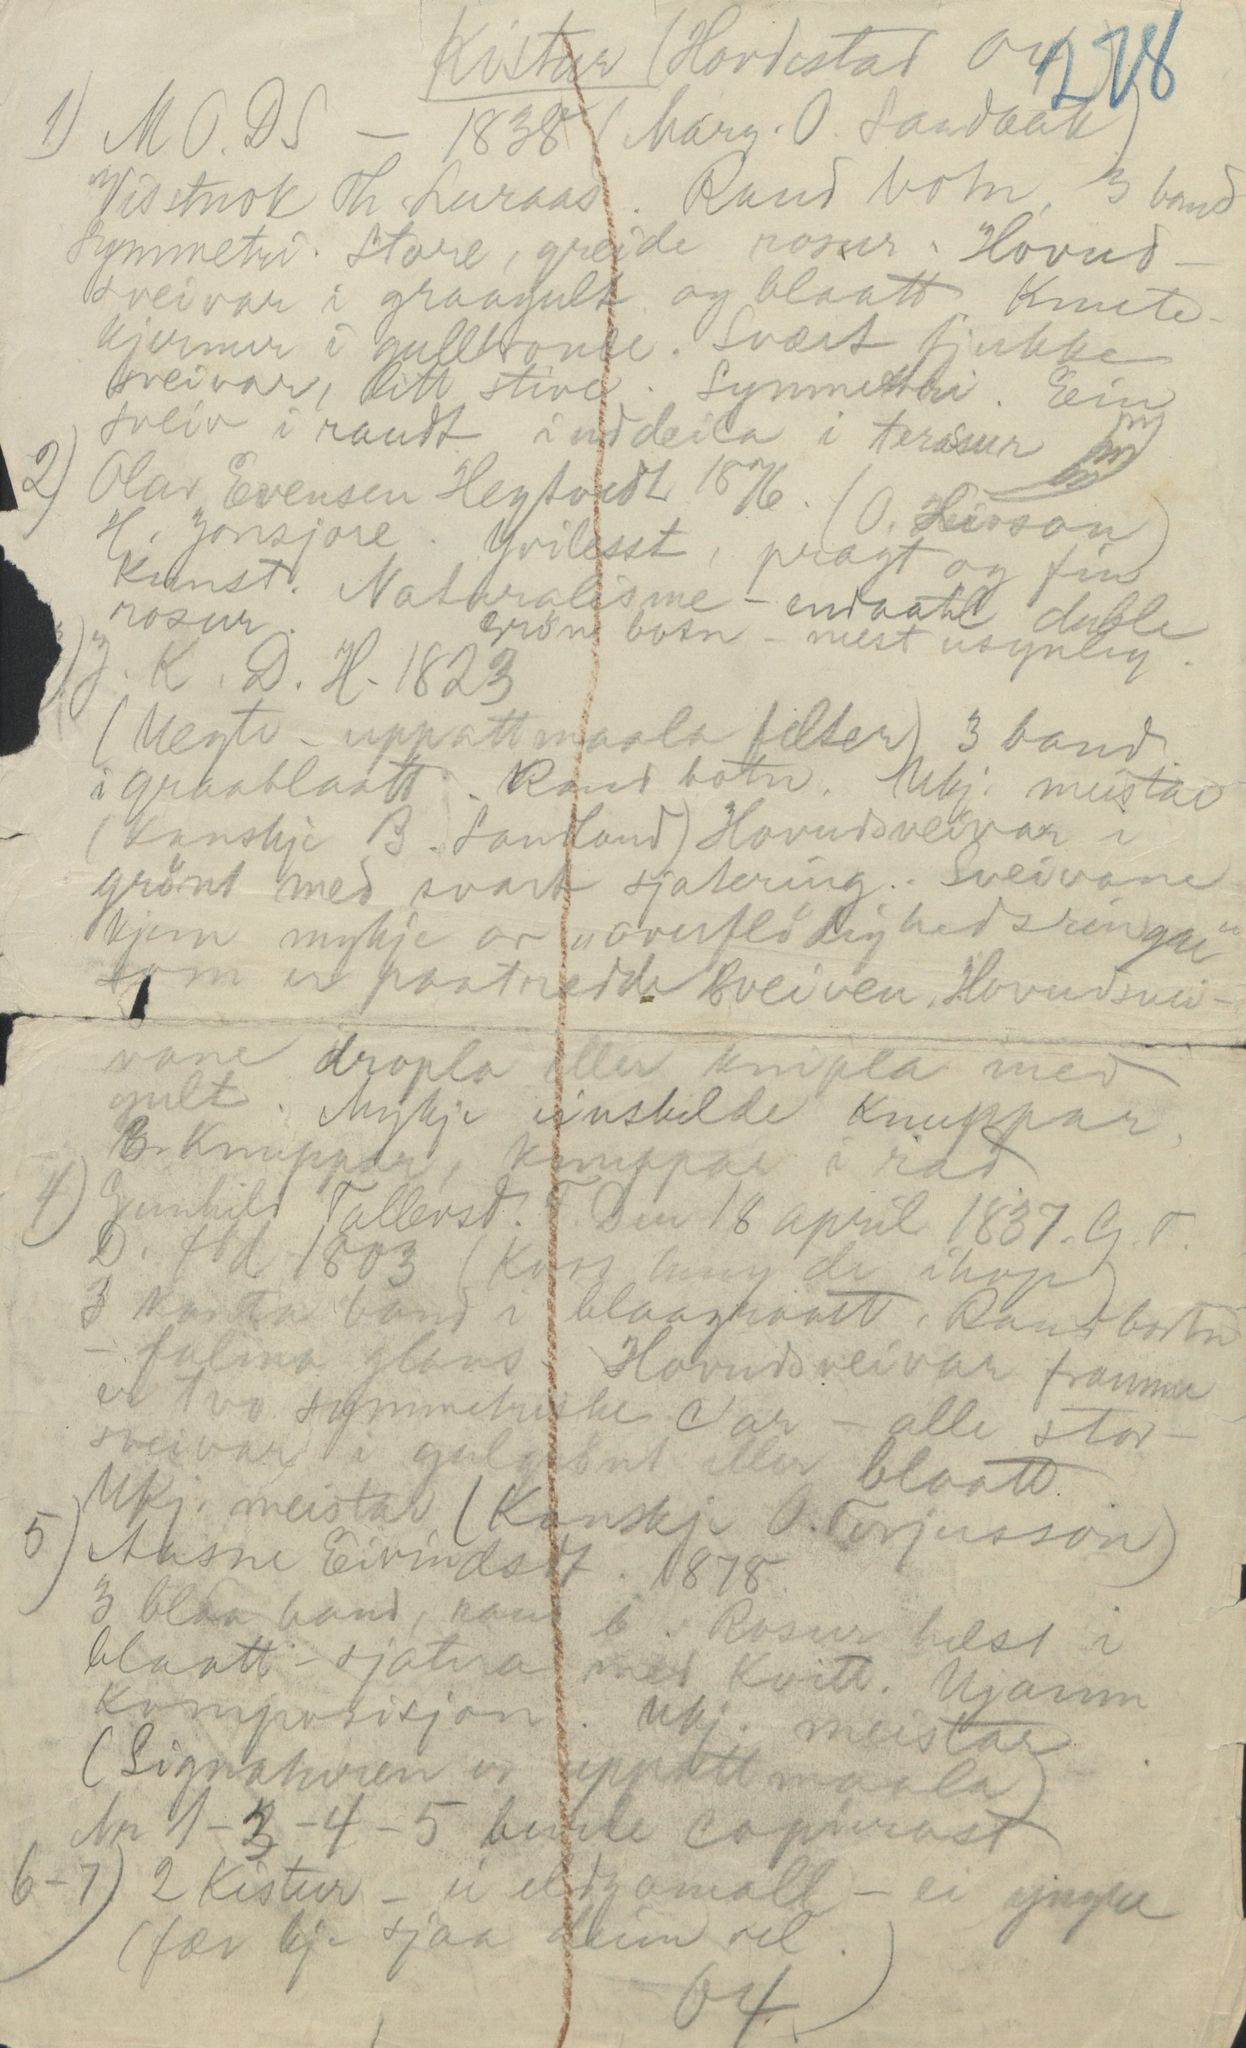 Kistur (Hovdestad 04)
278
1) M. O. DS — 1838 (Marg. O. Sandaak)
Visstnok Th. Luraas. Raud botn, 3 band
Symmetri. Store, greide rosur. Hovud-
sveivar i graagult og blaatt. Knute-
kjernur i gullbronse. Svært tjukke
sveivar, litt stive. Symmetri. Ein
sveiv i raudt inddeila i terasur
2) Olav Evensen Hegtvedt 1876. (O. Haisson)
H. Jonsjore. Yvilesst, pragt og fin
kunst. Naturalisme - endaatil duble
rosur. Grön botn - mest usynleg.
3) J. K. D. H. 1823
(Negte - uppattmaala felter) 3 band
i graablaatt. Raud botn. Ukj. meistar
(Kanskje B. Santland) Hovudsveivar i
grönt med svart sjatering. Sveivane
kjem mykje av "overflödighedsringar"
som er paatredde sveiven. Hovudsvei-
vane dropla eller knipla med
gult. Mykje einskilde knuppar,
3-knuppar, knuppar i rad
4) Gunhild Tallevsd. T. Den 18 april 1837. G. T.
D. föd 1803 (Korr heng de ihop)
3 kanta band i blaagraatt. Raud botn
- falma glans. Hovudsveivar framme
er tvo symmetriske C'ar - alle stor-
sveivar i gulgrönt eller blaatt
Ukj. meistar (Kanskje O. Terjusson)
5) Aasne Eivindsdt. 1878.
3 blaa band, raud b. Rosur helst i
blaatt - sjatera med kvitt. Ujamn
komposisjon. Ukj. meistar
(Signaturen er uppattmaala)
Nr 1-3-4-5 burde copierast
6-7) 2 Kistur - ei eldgamall - ei yngre
(fær kje sjaa deim vel.)
04.